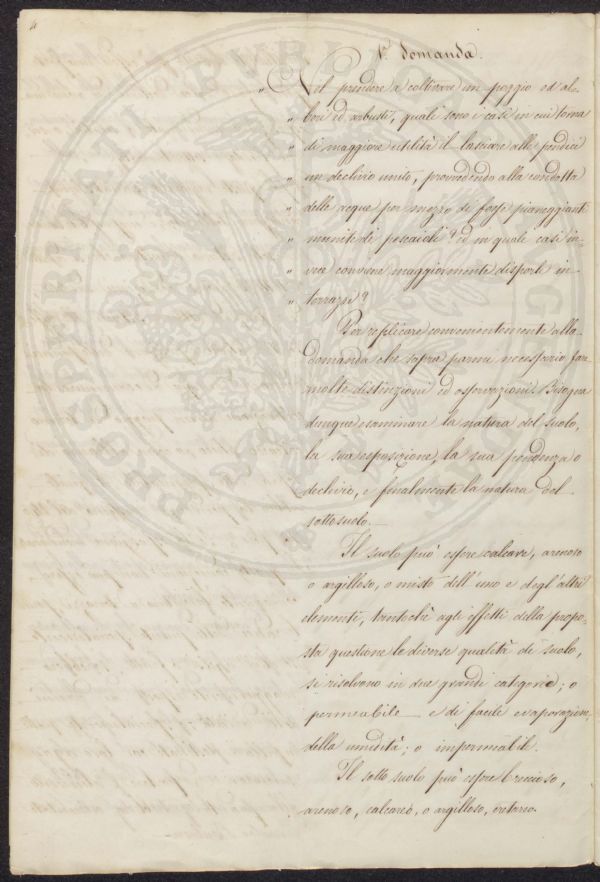 4
1ª Domanda.
" Nel prendere a coltivare un poggio ad al-
" beri ed arbusti, quali sono i casi in cui torna
" di maggiore utilità il lasciare alle pendici
" un declivio unito, provvedendo alla condotta
" delle acque per mezzo di fosse pianeggianti
" munite di pescaioli? ed in quale casi in-
" vece conviene maggiormente disporle in
" terrazze?
Per replicare convenientemente alla
domanda che sopra parmi necessario fare
molte distinzioni ed osservazioni. Bisogna
dunque esaminare la natura del suolo,
la sua esposizione, la sua pendenza o
declivio, e finalmente la natura del
sottosuolo.
Il suolo può essere calcare, arenoso
o argilloso, o misto dell'uno e degl'altri
elementi, tantochè agli effetti della propo-
sta questione le diverse qualità di suolo,
si risolvono in due grandi categorie; o
permeabile e di facile evaporazione
della umidità; o impermeabile.
Il sotto suolo può essere breccioso,
arenoso, calcareo, o argilloso, cretoso.
PROSPERITATI PVBLICAE